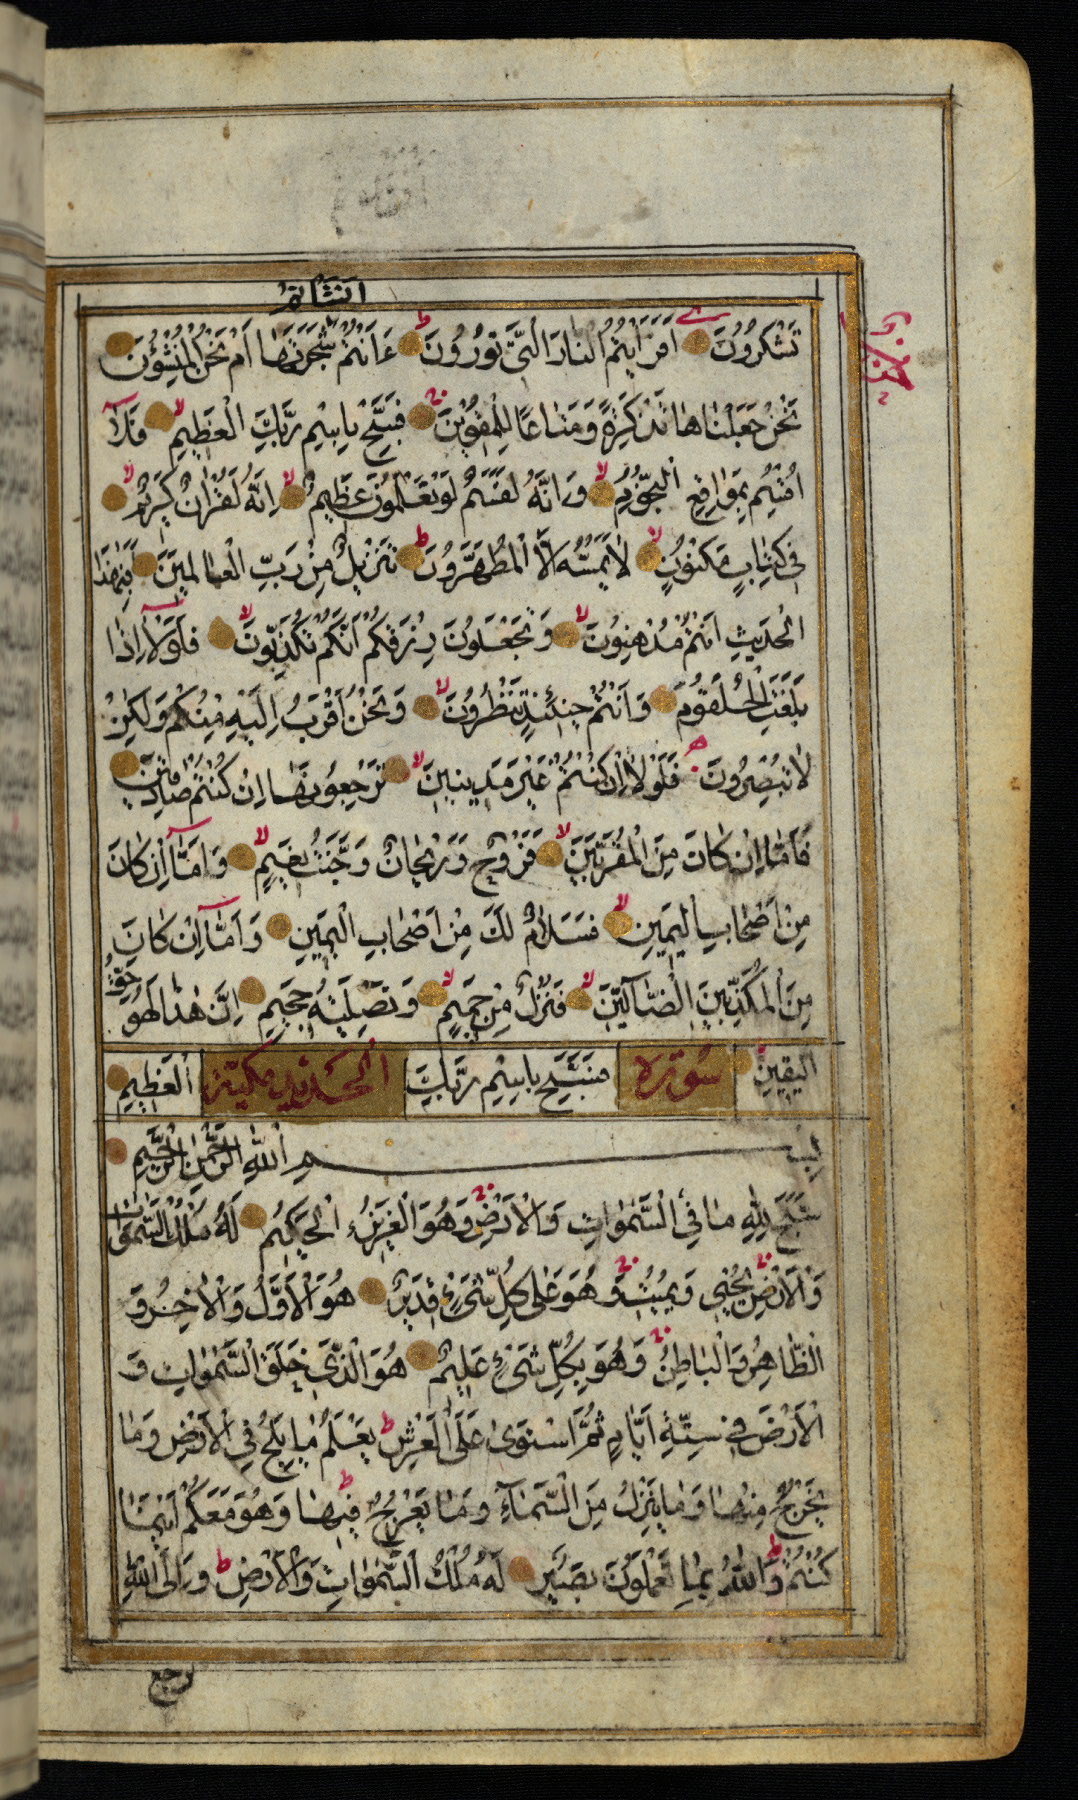 انشاتم
تَشْكُرُونَ اَفَرَاَيْتُمُ النَّارَ الَّتِى تُورُونَ ءَاَنْتُمْ اَنْشَاْتُمْ شَجَرَتَهَا اَمْ نَحْنُ الْمُنْشِؤُنَ
نَحْنُ جَعَلْنَاهَا تَذْكِرَةً وَمَتَاعًا لِلْمُقْوِينَ فَسَبِّحْ بِاسْمِ رَبِّكَ الْعَظِيمِ فَلَا
اُقْسِمُ بِمَوَاقِعِ النُّجُومِ وَاِنَّهُ لَقَسَمٌ لَوْ تَعْلَمُونَ عَظِيمٌ اِنَّهُ لَقُرْاٰنٌ كَرِيمٌ
فِى كِتَابٍ مَكْنُونٍ لَا يَمَسُّهُ اِلَّا الْمُطَهَّرُونَ تَنْزِيلٌ مِنْ رَبِّ الْعَالَمِينَ اَفَبِهٰذَا
الْحَدِيثِ اَنْتُمْ مُدْهِنُونَ وَتَجْعَلُونَ رِزْقَكُمْ اَنَّكُمْ تُكَذِّبُونَ فَلَوْلَا اِذَا
بَلَغَتِ الْحُلْقُومَ وَاَنْتُمْ حِينَئِذٍ تَنْظُرُونَ وَنَحْنُ اَقْرَبُ اِلَيْهِ مِنْكُمْ وَلٰكِنْ
لَا تُبْصِرُونَ فَلَوْلَا اِنْ كُنْتُمْ غَيْرَ مَدِينِينَ تَرْجِعُونَهَا اِنْ كُنْتُمْ صَادِقِينَ
فَاَمَّا اِنْ كَانَ مِنَ الْمُقَرَّبِينَ فَرَوْحٌ وَرَيْحَانٌ وَجَنَّتُ نَعِيمٍ وَاَمَّا اِنْ كَانَ
مِنْ اَصْحَابِ الْيَمِينِ فَسَلَامٌ لَكَ مِنْ اَصْحَابِ الْيَمِينِ وَاَمَّا اِنْ كَانَ
مِنَ الْمُكَذِّبِينَ الضَّالِّينَ فَنُزُلٌ مِنْ حَمِيمٍ وَتَصْلِيَةُ جَحِيمٍ اِنَّ هٰذَا لَهُوَ حَقُّ
الْيَقِينِ سورة فَسَبِّحْ بِاسْمِ رَبِّكَ الحديد مكية الْعَظِيمِ
بِسْمِ اللّٰهِ الرَّحْمٰنِ الرَّحِيمِ
سَبَّحَ لِلّٰهِ مَا فِى السَّمٰوَاتِ وَالْاَرْضِ وَهُوَ الْعَزِيزُ الْحَكِيمُ لَهُ مُلْكُ السَّمٰوَاتِ
وَالْاَرْضِ يُحْيِى وَيُمِيتُ وَهُوَ عَلٰى كُلِّ شَىْءٍ قَدِيرٌ هُوَ الْاَوَّلُ وَالْاٰخِرُ وَ
الظَّاهِرُ وَالْبَاطِنُ وَهُوَ بِكُلِّ شَىْءٍ عَلِيمٌ هُوَ الَّذِى خَلَقَ السَّمٰوَاتِ وَ
الْاَرْضَ فِى سِتَّةِ اَيَّامٍ ثُمَّ اسْتَوٰى عَلَى الْعَرْشِ يَعْلَمُ مَا يَلِجُ فِى الْاَرْضِ وَمَا
يَخْرُجُ مِنْهَا وَمَا يَنْزِلُ مِنَ السَّمَاءِ وَمَا يَعْرُجُ فِيهَا وَهُوَ مَعَكُمْ اَيْنَمَا
كُنْتُمْ وَاللّٰهُ بِمَا تَعْمَلُونَ بَصِيرٌ لَهُ مُلْكُ السَّمٰوَاتِ وَالْاَرْضِ وَاِلَى اللّٰهِ
ترجع